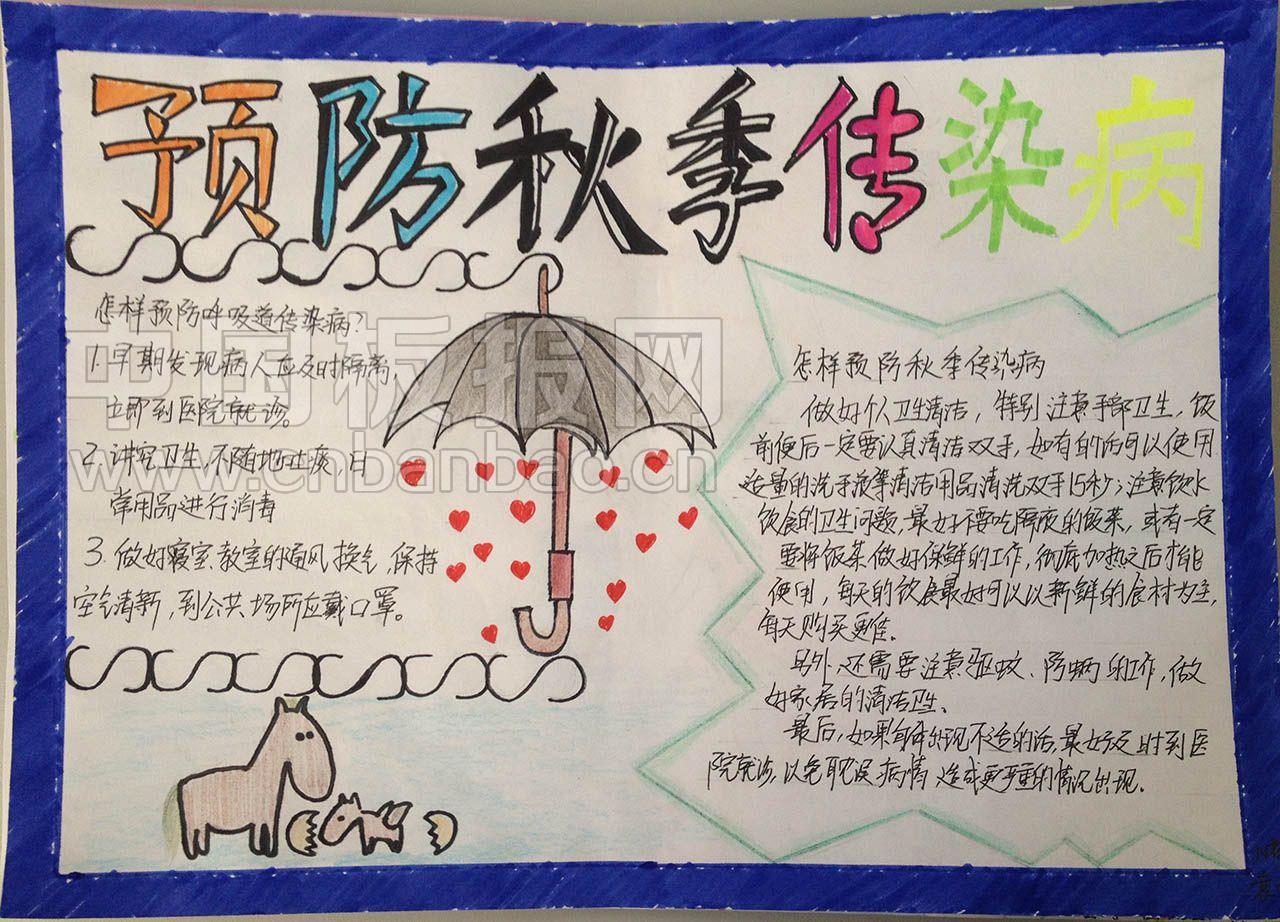 预防秋季传染病
怎样预防呼吸道传染病?
1.早期发现病人应及时隔离,
立即到医院就诊。
2.讲究卫生,不随地吐痰,日
常用品进行消毒
3.做好寝室、教室的通风换气,保持
空气清新,到公共场所应戴口罩。
怎样预防秋季传染病
做好个人卫生清洁,特别注意手部卫生,饭
前便后一定要认真清洁双手,如有的话可以使用
适量的洗手液等清洁用品清洗双手15秒;注意饮水
饮食的卫生问题,最好不要吃隔夜的饭菜,或者一定
要将饭菜做好保鲜的工作,彻底加热之后才能
使用,每天的饮食最好可以以新鲜的食材为主,
每天购买更佳.
另外,还需要注意驱蚊、防螨的工作,做
好家居的清洁卫生、
最后,如果身体出现不适的话,最好及时到医
院就诊,以免耽误病情,造成更严重的情况出现.
中国板报网
www.cnbanbao.cn